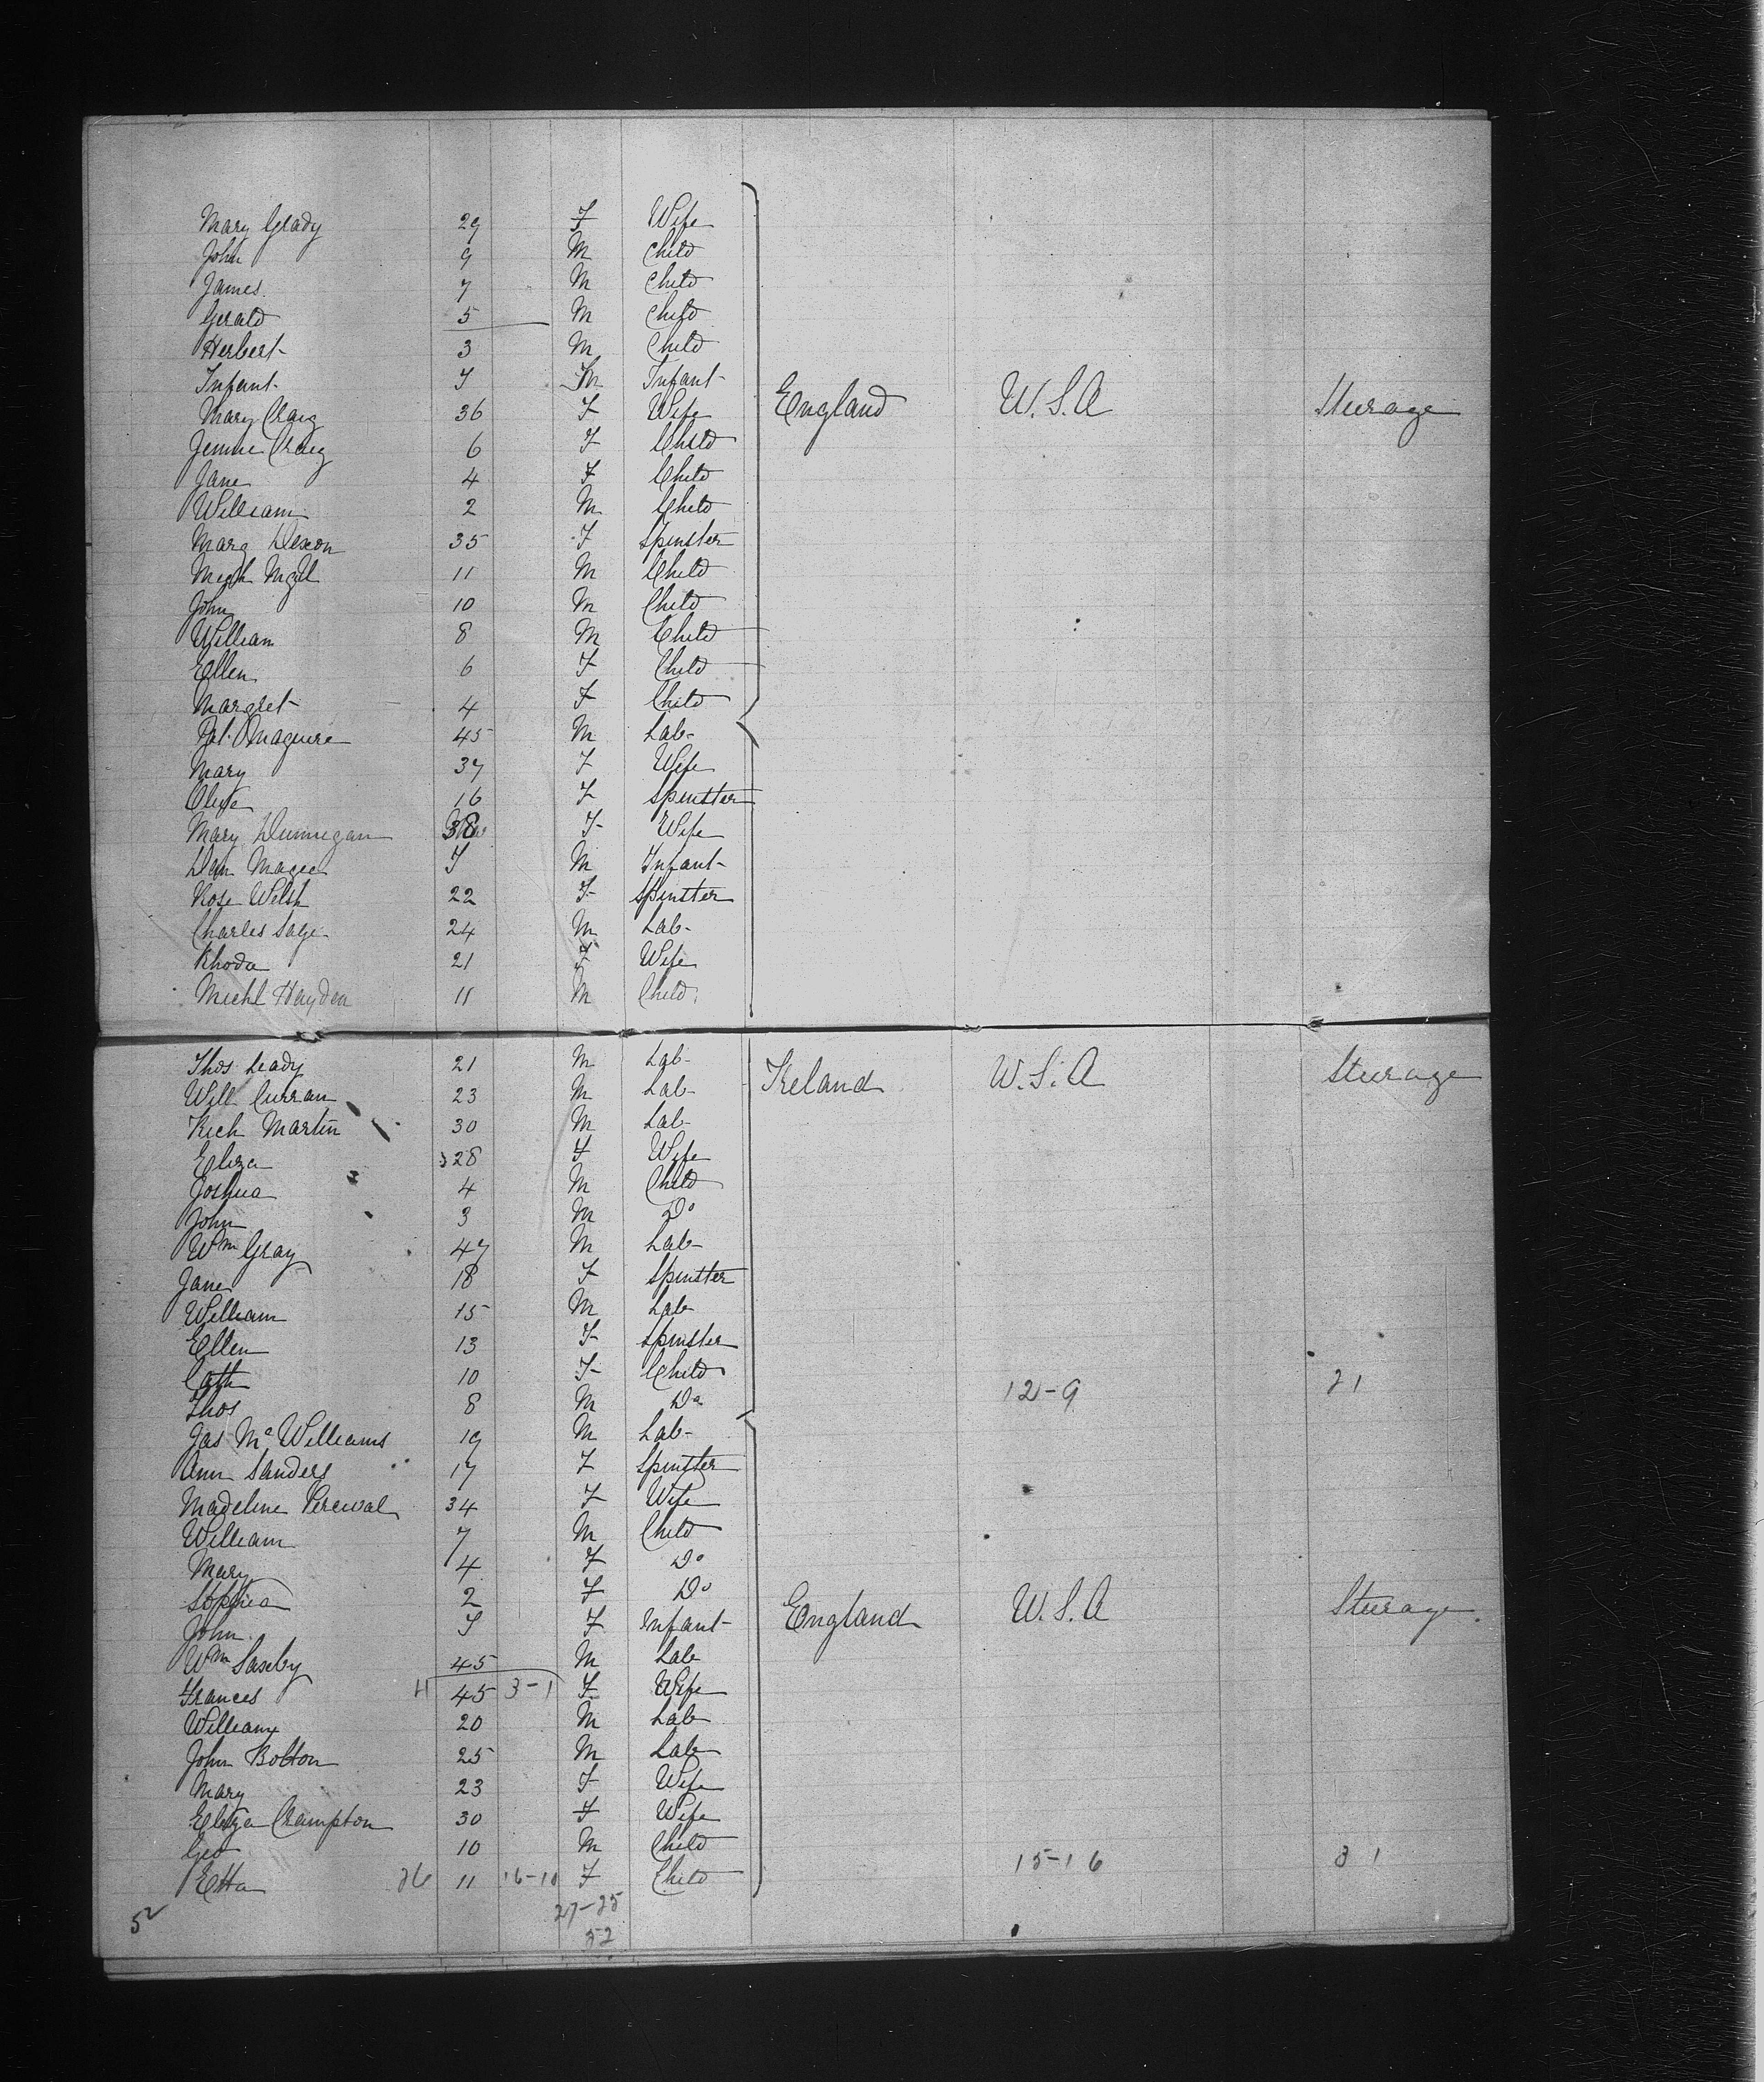 Mary Grady 29 F Wife
John 9 M Child
James 7 M Child
Gerald 5 M Child
Herbert 3 M Child
Infant I M Infant
Mary Craig 36 F Wife England U.S.A Steerage
Jennie Craig 6 F Child
Jane 4 F Child
William 2 M Child
Marg Dixon 35 F Spinster
11 M Child
John 10 M Child
William 8 M Child
Ellen 6 F Child
Margret 4 F Child
Pat Maguire 45 M Lab
Mary 37 F Wife
16 F Spinster
Mary Dunnigan 38 F Wife
Dan Magee I M Infant
Rose Welsh 22 F Spinster
Charles Sage 24 M Lab
Rhoda 21 F Wife
Michl Hayden 11 M Child
Thos Leady 21 M Lab Ireland U.S.A Steerage
Will Curran 23 M Lab
Rich Martin 30 M Lab
Eliza 28 F Wife
Joshua 4 M Child
John 3 M Do
Wm Gray 47 M Lab
Jane 18 F Spinster
William 15 M Lab
Ellen 13 F Spinster
Cath 10 F Child 12-9 21
Thos 8 M Do
Jas McWilliams 19 M Lab
Ann Sanders 17 F Spinster
Madeline Perceval 34 F Wife
William 7 M Child
Mary 4 F Do
Sophia 2 F Do England U.S.A Steerage
John I F Infant
Wm Saseby 45 M Lab
Frances 4 45 3-1 F Wife
William 20 M Lab
John Bolton 25 M Lab
Mary 23 F Wife
Eliza Crampton 30 F Wife
Geo 10 M Child 15-16 31
Etta 26 11 16-10 F Child
27-25
52 52